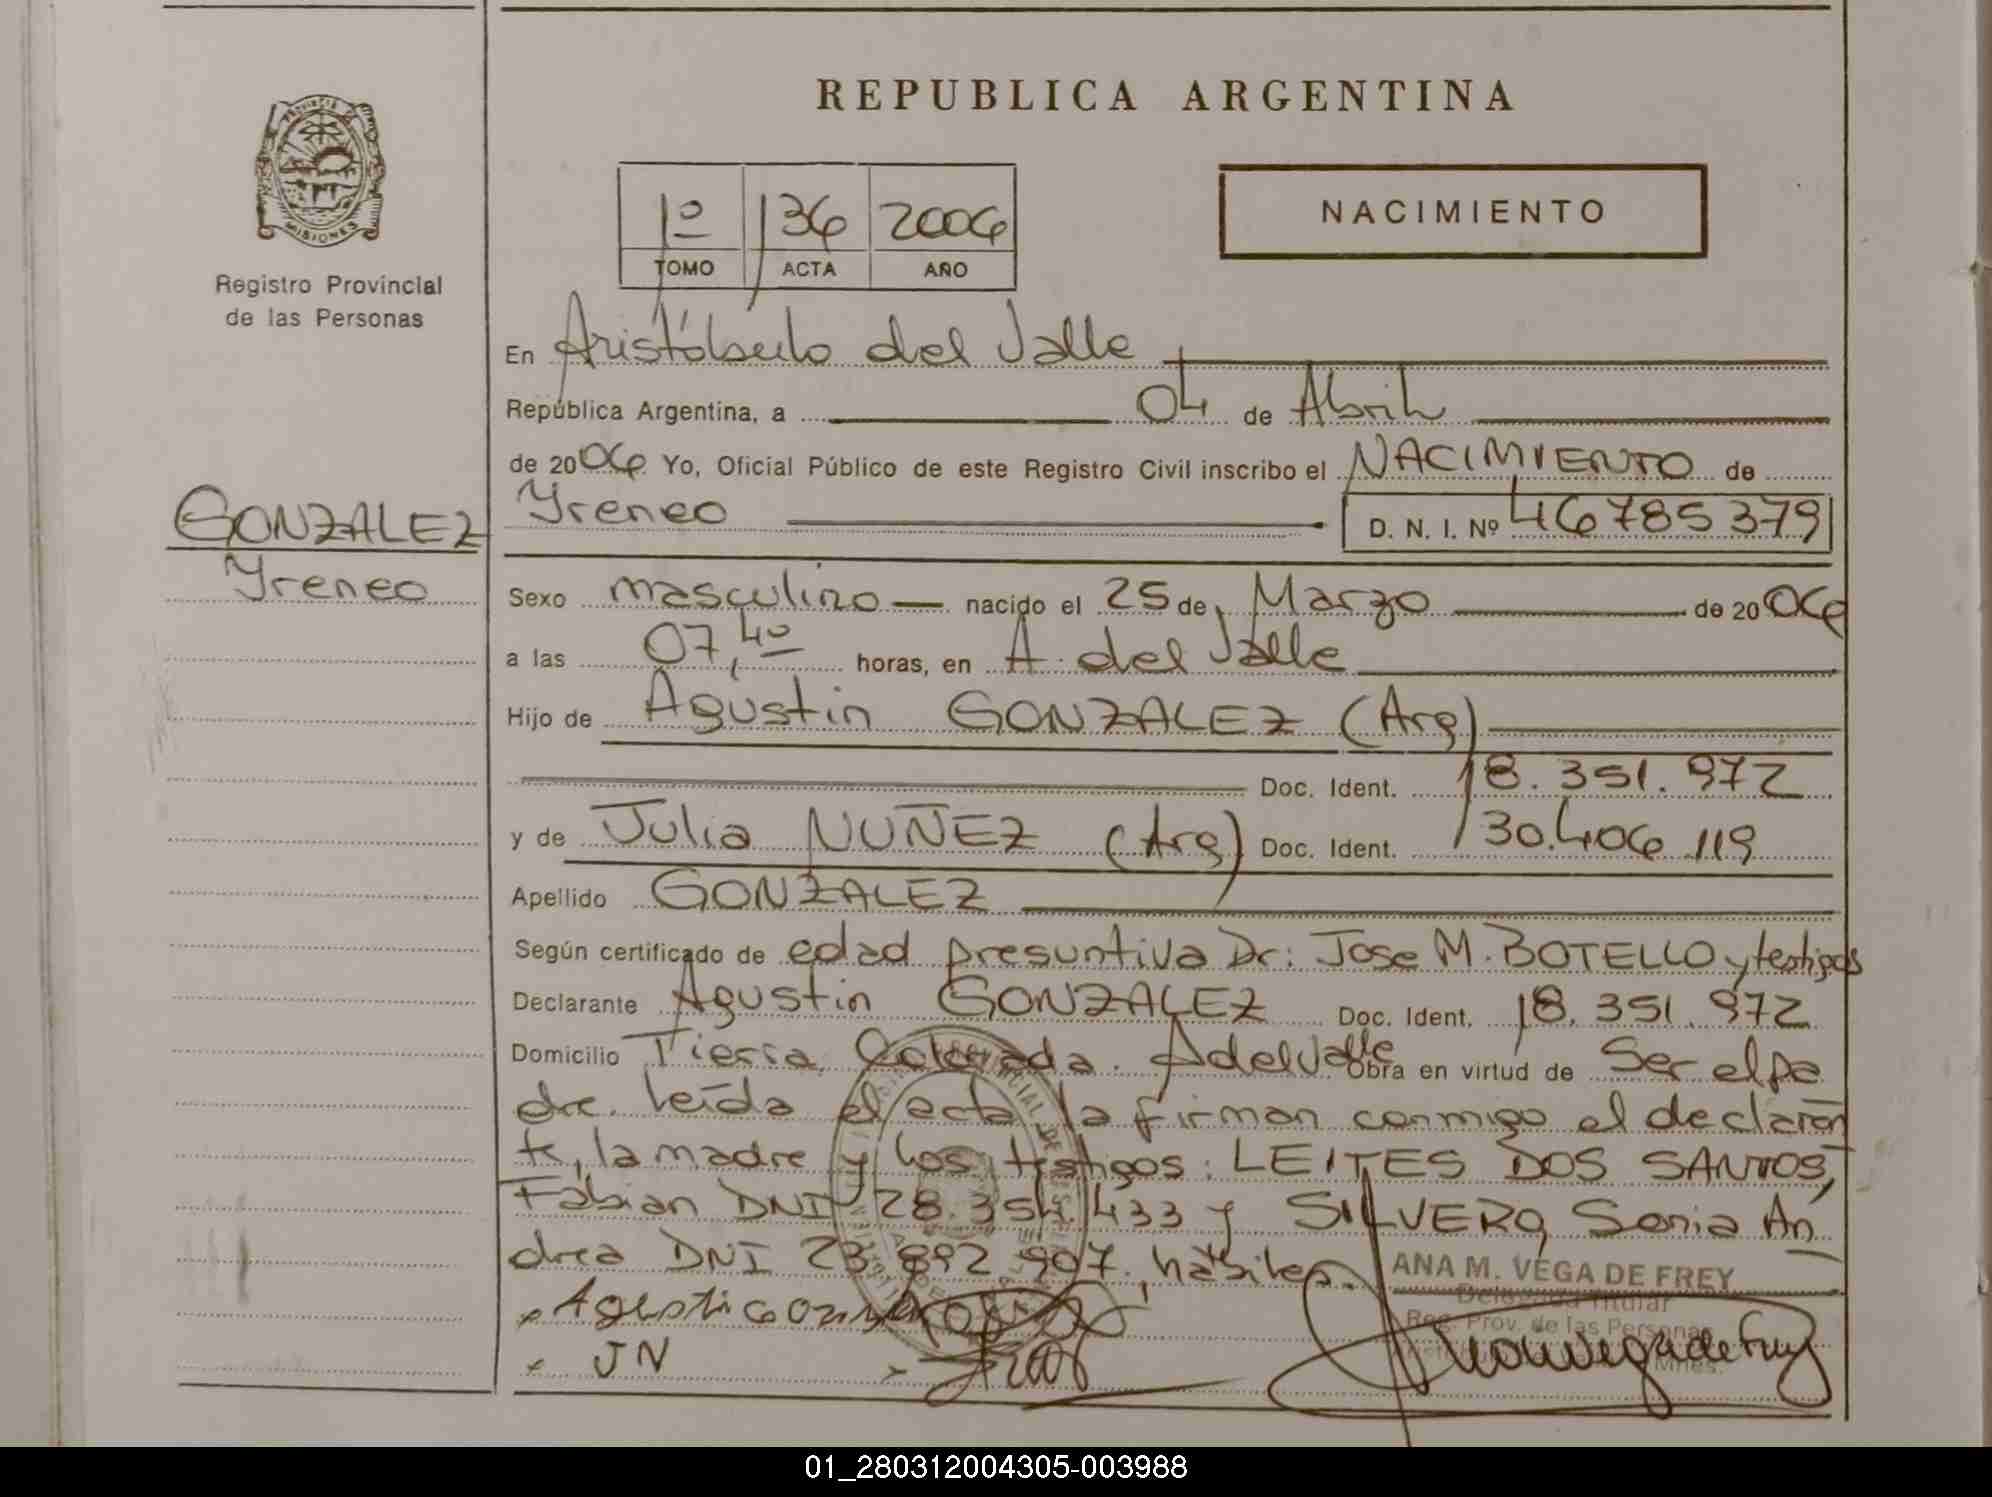 REPUBLICA ARGENTINA
PROVINCIA DE
MISIONES
Registro Provincial
de las Personas
1º 136 2006
TOMO ACTA AÑO
NACIMIENTO
En Aristóbulo del Valle
República Argentina, a 04 de Abril
de 2006 Yo, Oficial Público de este Registro Civil inscribo el NACIMIENTO de
GONZALEZ
Yreneo
Yreneo D. N. I. Nº 46785379
Sexo masculino nacido el 25 de Marzo de 2006
a las 07,40 horas, en A. del Valle
Hijo de Agustin GONZALEZ (Arg)
Doc. Ident. 18.351.972
y de Julia NUÑEZ (Arg) Doc. Ident. 30.406.119
Apellido GONZALEZ
Según certificado de edad presuntiva Dr: Jose M. BOTELLO y testigos
Declarante Agustin GONZALEZ Doc. Ident. 18.351.972
Domicilio Tierra Colorada. A del Valle Obra en virtud de Ser el pa
dre. leída el acta la firman conmigo el declaran
te, la madre y los testigos: LEITES DOS SANTOS,
Fabian DNI 28.354.433 y SILVERO, Sonia An
drea DNI 23.892.907, hábiles.
ANA M. VEGA DE FREY
Delegada Titular
Reg. Prov. de las Personas
Mnes.
JN
01_280312004305-003988